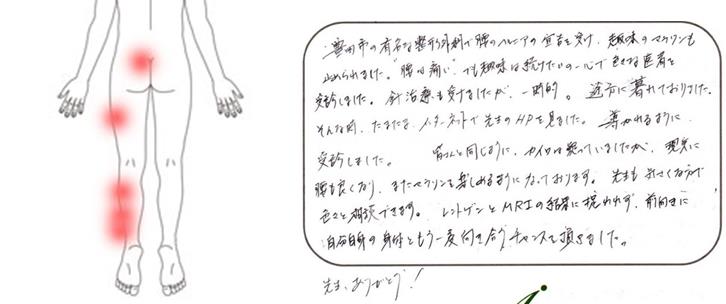 豊田市の有名な整形外科で腰のヘルニアの宣告を受け、趣味のマラソンも
止められました。"腰は痛い"でも趣味は続けたいの一心で色々な医者を
受診しました。針治療も受けましたが、一時的。途方に暮れておりました。
そんな時、たまたま、インターネットで先生のHPを見ました。導かれるように
受診しました。 同じように、カイロは疑っていましたが、現実に
腰も良くなり、またマラソンを楽しめるようになっております。先生も きさくな方で
色々と相談できます。レントゲンとMRIの結果に捉われず、前向きに
自分自身の身体ともう一度向き合うチャンスを頂きました。
先生、ありがとう!